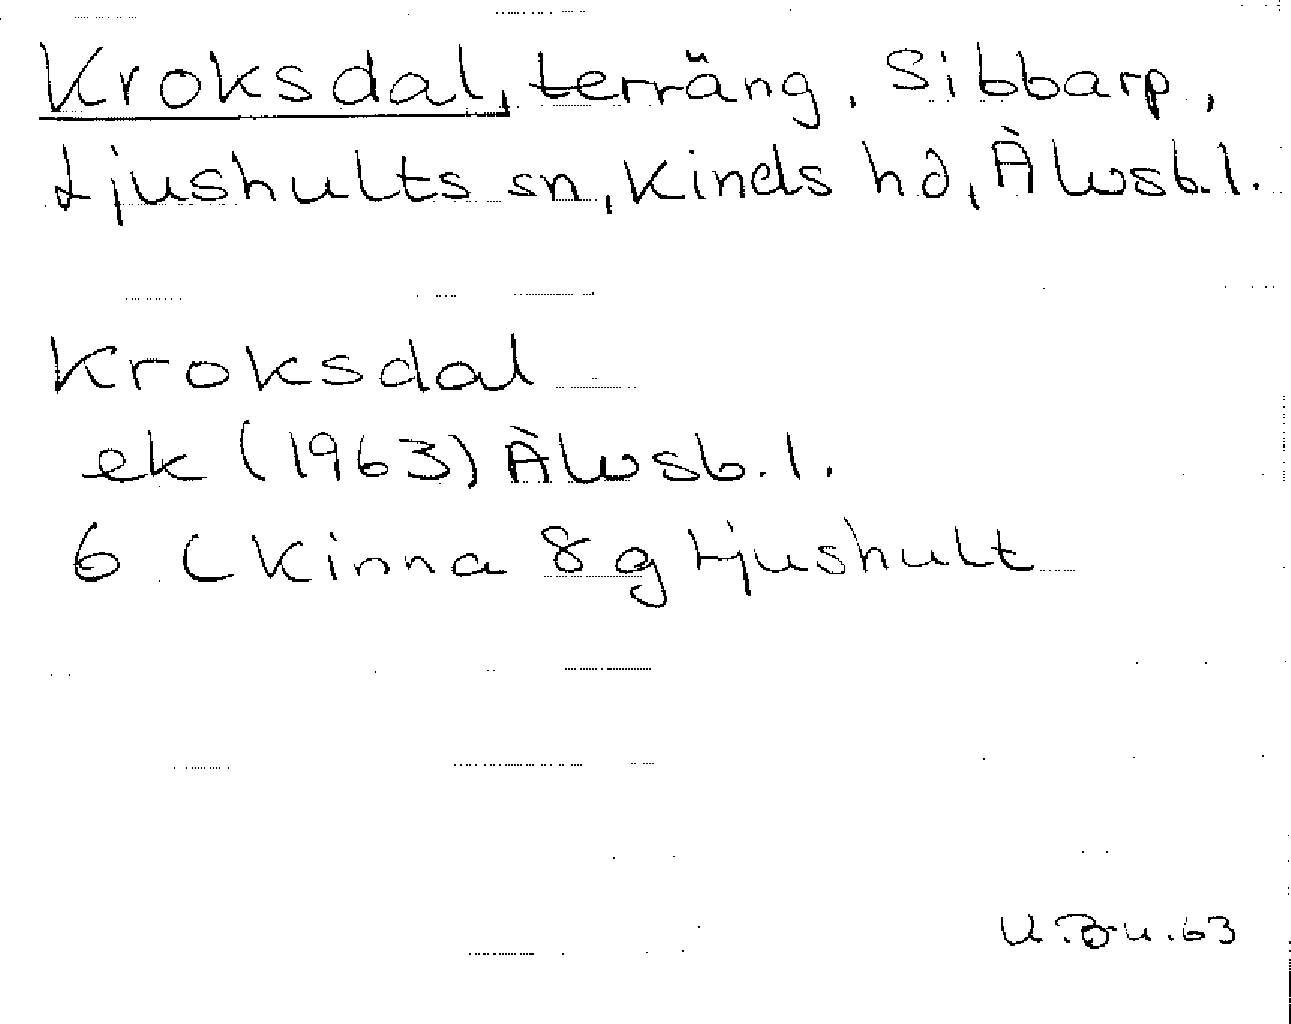 Kroksdal, terräng, Sibbarp,
Ljushults sn, Kinds hd, Älvsb. l.
Kroksdal
ek (1963) Älvsb. l.
6 C Kinna 8 g Ljushult
U.Bu.63